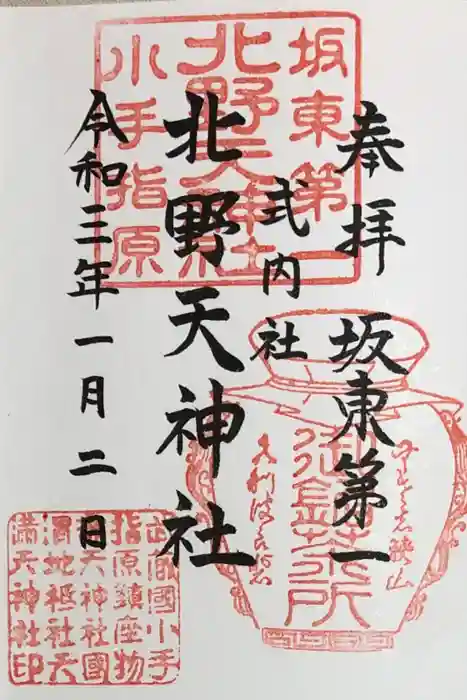 奉拝
坂東第一
式内社
北野天神社
令和三年一月二日
坂東第一
北野天神社
小手指原
御茶所
武蔵国小手
指原鎮座物
天神社国
渭地祇社天
満天神社印